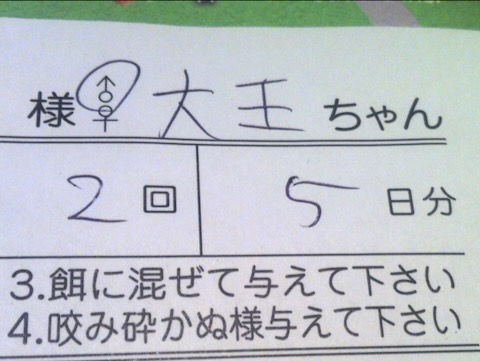 様 ♂♀ 大王 ちゃん
2 回 5 日分
3.餌に混ぜて与えて下さい
4.咬み砕かぬ様与えて下さい